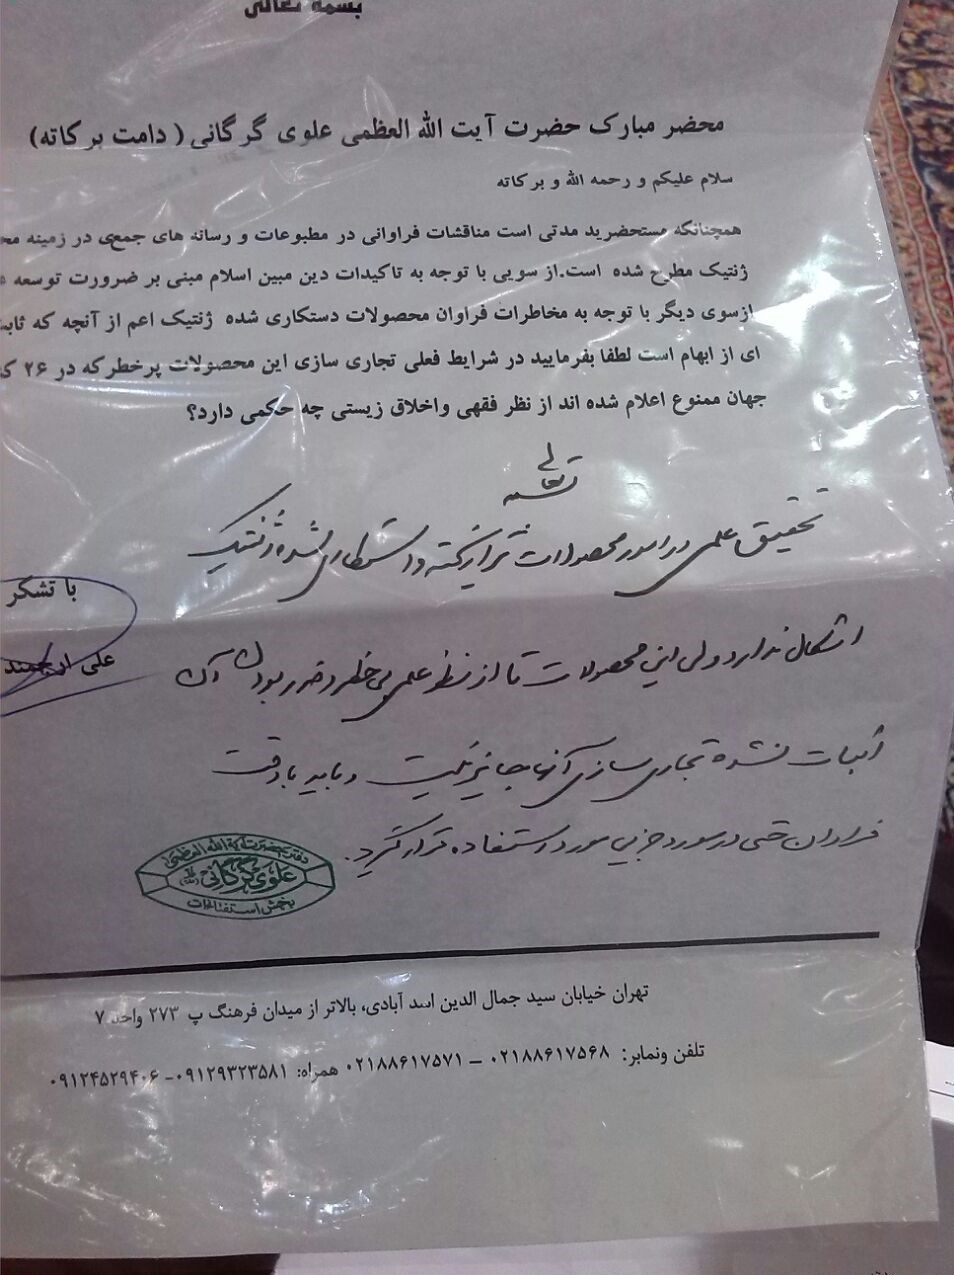 بسمه تعالی
محضر مبارک حضرت آیت الله العظمی علوی گرگانی ( دامت برکاته)
سلام علیکم و رحمه الله و برکاته
همچنانکه مستحضرید مدتی است مناقشات فراوانی در مطبوعات و رسانه های جمعی در زمینه
ژنتیک مطرح شده است.از سویی با توجه به تاکیدات دین مبین اسلام مبنی بر ضرورت توسعه
ازسوی دیگر با توجه به مخاطرات فراوان محصولات دستکاری شده ژنتیک اعم از آنچه که
ای از ابهام است لطفا بفرمایید در شرایط فعلی تجاری سازی این محصولات پرخطرکه در ۲۶
جهان ممنوع اعلام شده اند از نظر فقهی واخلاق زیستی چه حکمی دارد؟
بسمه تعالی
تحقیق علمی در امور محصولات تراریخته و دستکاری شده ژنتیک
با تشکر
اشکال ندارد ولی این محصولات تا از نظر علمی بی خطر و ضرر بودن آن
علی
اثبات نشده تجاری سازی آنها جایز نیست و باید با دقت
فراوان حتی در مورد جزیی مورد استفاده قرار گیرد.
دفتر حضرت آیة الله العظمی
علوی گرگانی
بخش استفتائات
تهران خیابان سید جمال الدین اسد آبادی، بالاتر از میدان فرهنگ پ ۲۷۳ واحد ۷
تلفن ونمابر: ۰۲۱۸۸۶۱۷۵۶۸ – ۰۲۱۸۸۶۱۷۵۷۱ همراه: ۰۹۱۲۹۳۲۳۵۸۱- ۰۹۱۲۴۵۲۹۴۰۶